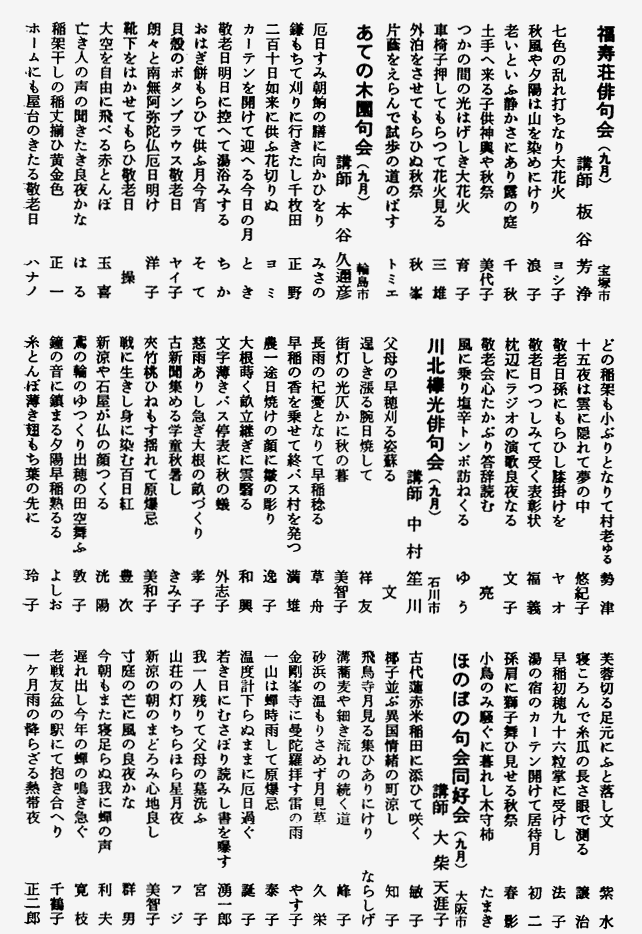 福寿荘俳句会(九月)
講師 板谷芳浄 宝塚市
七色の乱れ打ちなり大花火 ヨシ子
秋風や夕陽は山を染めにけり 浪子
老いといふ静かさにあり露の庭 千秋
土手へ来る子供神輿や秋祭 美代子
つかの間の光はげしき大花火 育子
車椅子押してもらつて花火見る 三雄
外泊をさせてもらひぬ秋祭 秋峯
片蔭をえらんで試歩の道のばす トミエ
あての木園句会(九月)
講師 本谷久邇彦 輪島市
厄日すみ朝餉の膳に向かひをり みさの
鎌もちて刈りに行きたし千枚田 正野
二百十日如来に供ふ花切りぬ ヨミ
カーテンを開けて迎へる今日の月 とき
敬老日明日に控へて湯浴みする ちか
おはぎ餅もらひて供ふ月今宵 そて
貝殻のボタンブラウス敬老日 ヤイ子
朗々と南無阿弥陀仏厄日明け 洋子
靴下をはかせてもらひ敬老日 操
大空を自由に飛べる赤とんぼ 玉喜
亡き人の声の聞きたき良夜かな はる
稲架干しの稲丈揃ひ黄金色 正一
ホームにも屋台のきたる敬老日 ハナノ
どの稲架も小ぶりとなりて村老ゆる 勢津
十五夜は雲に隠れて夢の中 悠紀子
敬老日孫にもらひし膝掛けを ヤオ
敬老日つつしみて受く表彰状 福義
枕辺にラジオの演歌良夜なる 文子
敬老会心たかぶり答辞読む 亮
風に乗り塩辛トンボ訪ねくる ゆう
川北欅光俳句会(九月)
講師 中村笙川 石川市
父母の早稲刈る姿蘇る 文
逞しき漲る腕日焼して 祥友
街灯の光仄かに秋の暮 美智子
長雨の杞憂となりて早稲稔る 草舟
早稲の香を乗せて終バス村を発つ 満雄
農一途日焼けの顔に皺の彫り 逸子
大根蒔く畝立継ぎに雲翳る 和興
文字薄きバス停表に秋の蟻 外志子
慈雨ありし急ぎ大根の畝づくり 孝子
古新聞集める学童秋暑し きみ子
夾竹桃ひねもす揺れて原爆忌 美和子
戦に生きし身に染む百日紅 豊次
新涼や石屋が仏の顔つくる 洸陽
鳶の輪のゆつくり出穂の田空舞ふ 敦子
鐘の音に鎮まる夕陽早稲熟るる よしお
糸とんぼ薄き翅もち葉の先に 玲子
芙蓉切る足元にふと落し文 紫水
寝ころんで糸瓜の長さ眼で測る 譲治
早稲初穂九十六粒掌に受けし 法子
湯の宿のカーテン開けて居待月 初二
孫肩に獅子舞ひ見せる秋祭 春影
小鳥のみ騒ぐに暮れし木守柿 たまき
ほのぼの句会同好会(九月)
講師 大柴天涯子 大阪市
古代蓮赤米稲田に添ひて咲く 敏子
椰子並ぶ異国情緒の町涼し 知子
飛鳥寺月見る集ひありにけり ならしげ
溝蕎麦や細き流れの続く道 峰子
砂浜の温もりさめず月見草 久栄
金剛峯寺に曼陀羅拝す雷の雨 やす子
一山は蟬時雨して原爆忌 泰子
温度計下らぬままに厄日過ぐ 誕子
若き日にむさぼり読みし書を曝す 湧一郎
我一人残りて父母の墓洗ふ 宮子
山荘の灯りちらほら星月夜 フジ
新涼の朝のまどろみ心地良し 美智子
寸庭の芒に風の良夜かな 群男
今朝もまた寝足らぬ我に蟬の声 利夫
遅れ出し今年の蟬の鳴き急ぐ 寛枝
老戦友盆の駅にて抱き合へり 千鶴子
一ケ月雨の降らざる熱帯夜 正二郎